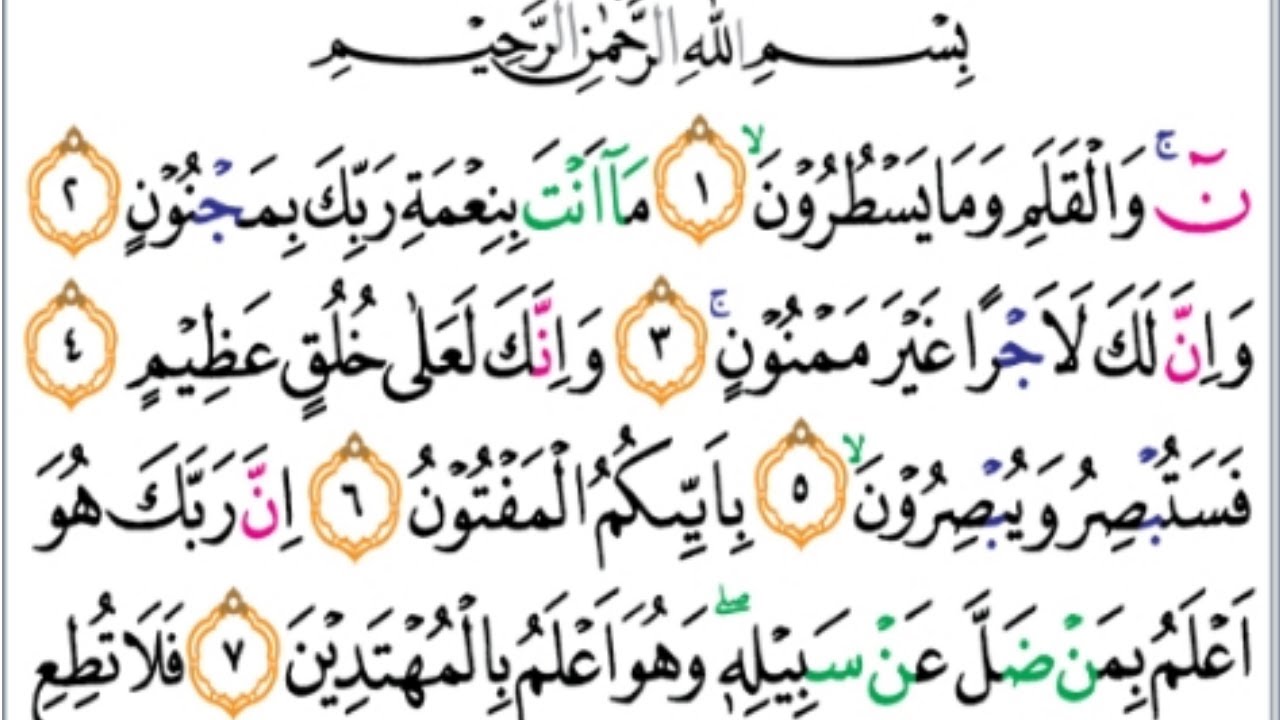 بِسْمِ اللّٰهِ الرَّحْمٰنِ الرَّحِيْمِ
نٓ ۚ وَالْقَلَمِ وَمَا يَسْطُرُوْنَ ۙ ١ مَآ اَنْتَ بِنِعْمَةِ رَبِّكَ بِمَجْنُوْنٍ ٢
وَاِنَّ لَكَ لَاَجْرًا غَيْرَ مَمْنُوْنٍ ۚ ٣ وَاِنَّكَ لَعَلٰى خُلُقٍ عَظِيْمٍ ٤
فَسَتُبْصِرُ وَيُبْصِرُوْنَ ۙ ٥ بِاَيِّىكُمُ الْمَفْتُوْنُ ٦ اِنَّ رَبَّكَ هُوَ
اَعْلَمُ بِمَنْ ضَلَّ عَنْ سَبِيْلِهٖ ۖ وَهُوَ اَعْلَمُ بِالْمُهْتَدِيْنَ ٧ فَلَا تُطِعِ